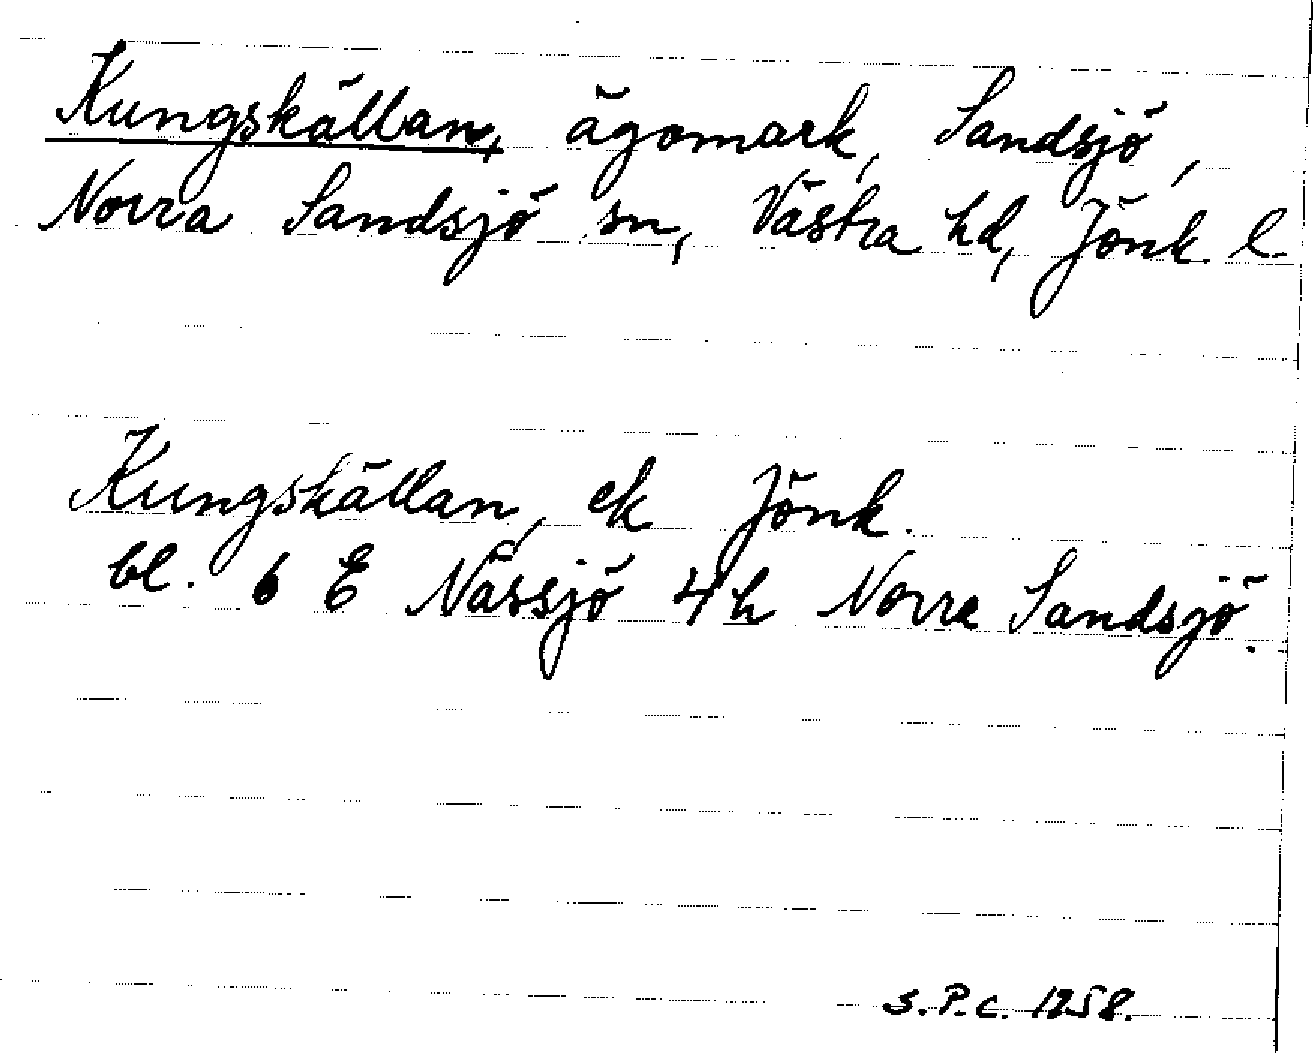 Kungskällan, ägomark, Sandsjö,
Norra Sandsjö sn, Västra hd, Jönk. l.
Kungskällan, ek Jönk.
bl. 6 E Nässjö 4h Norra Sandsjö.
S.P.C. 1258.